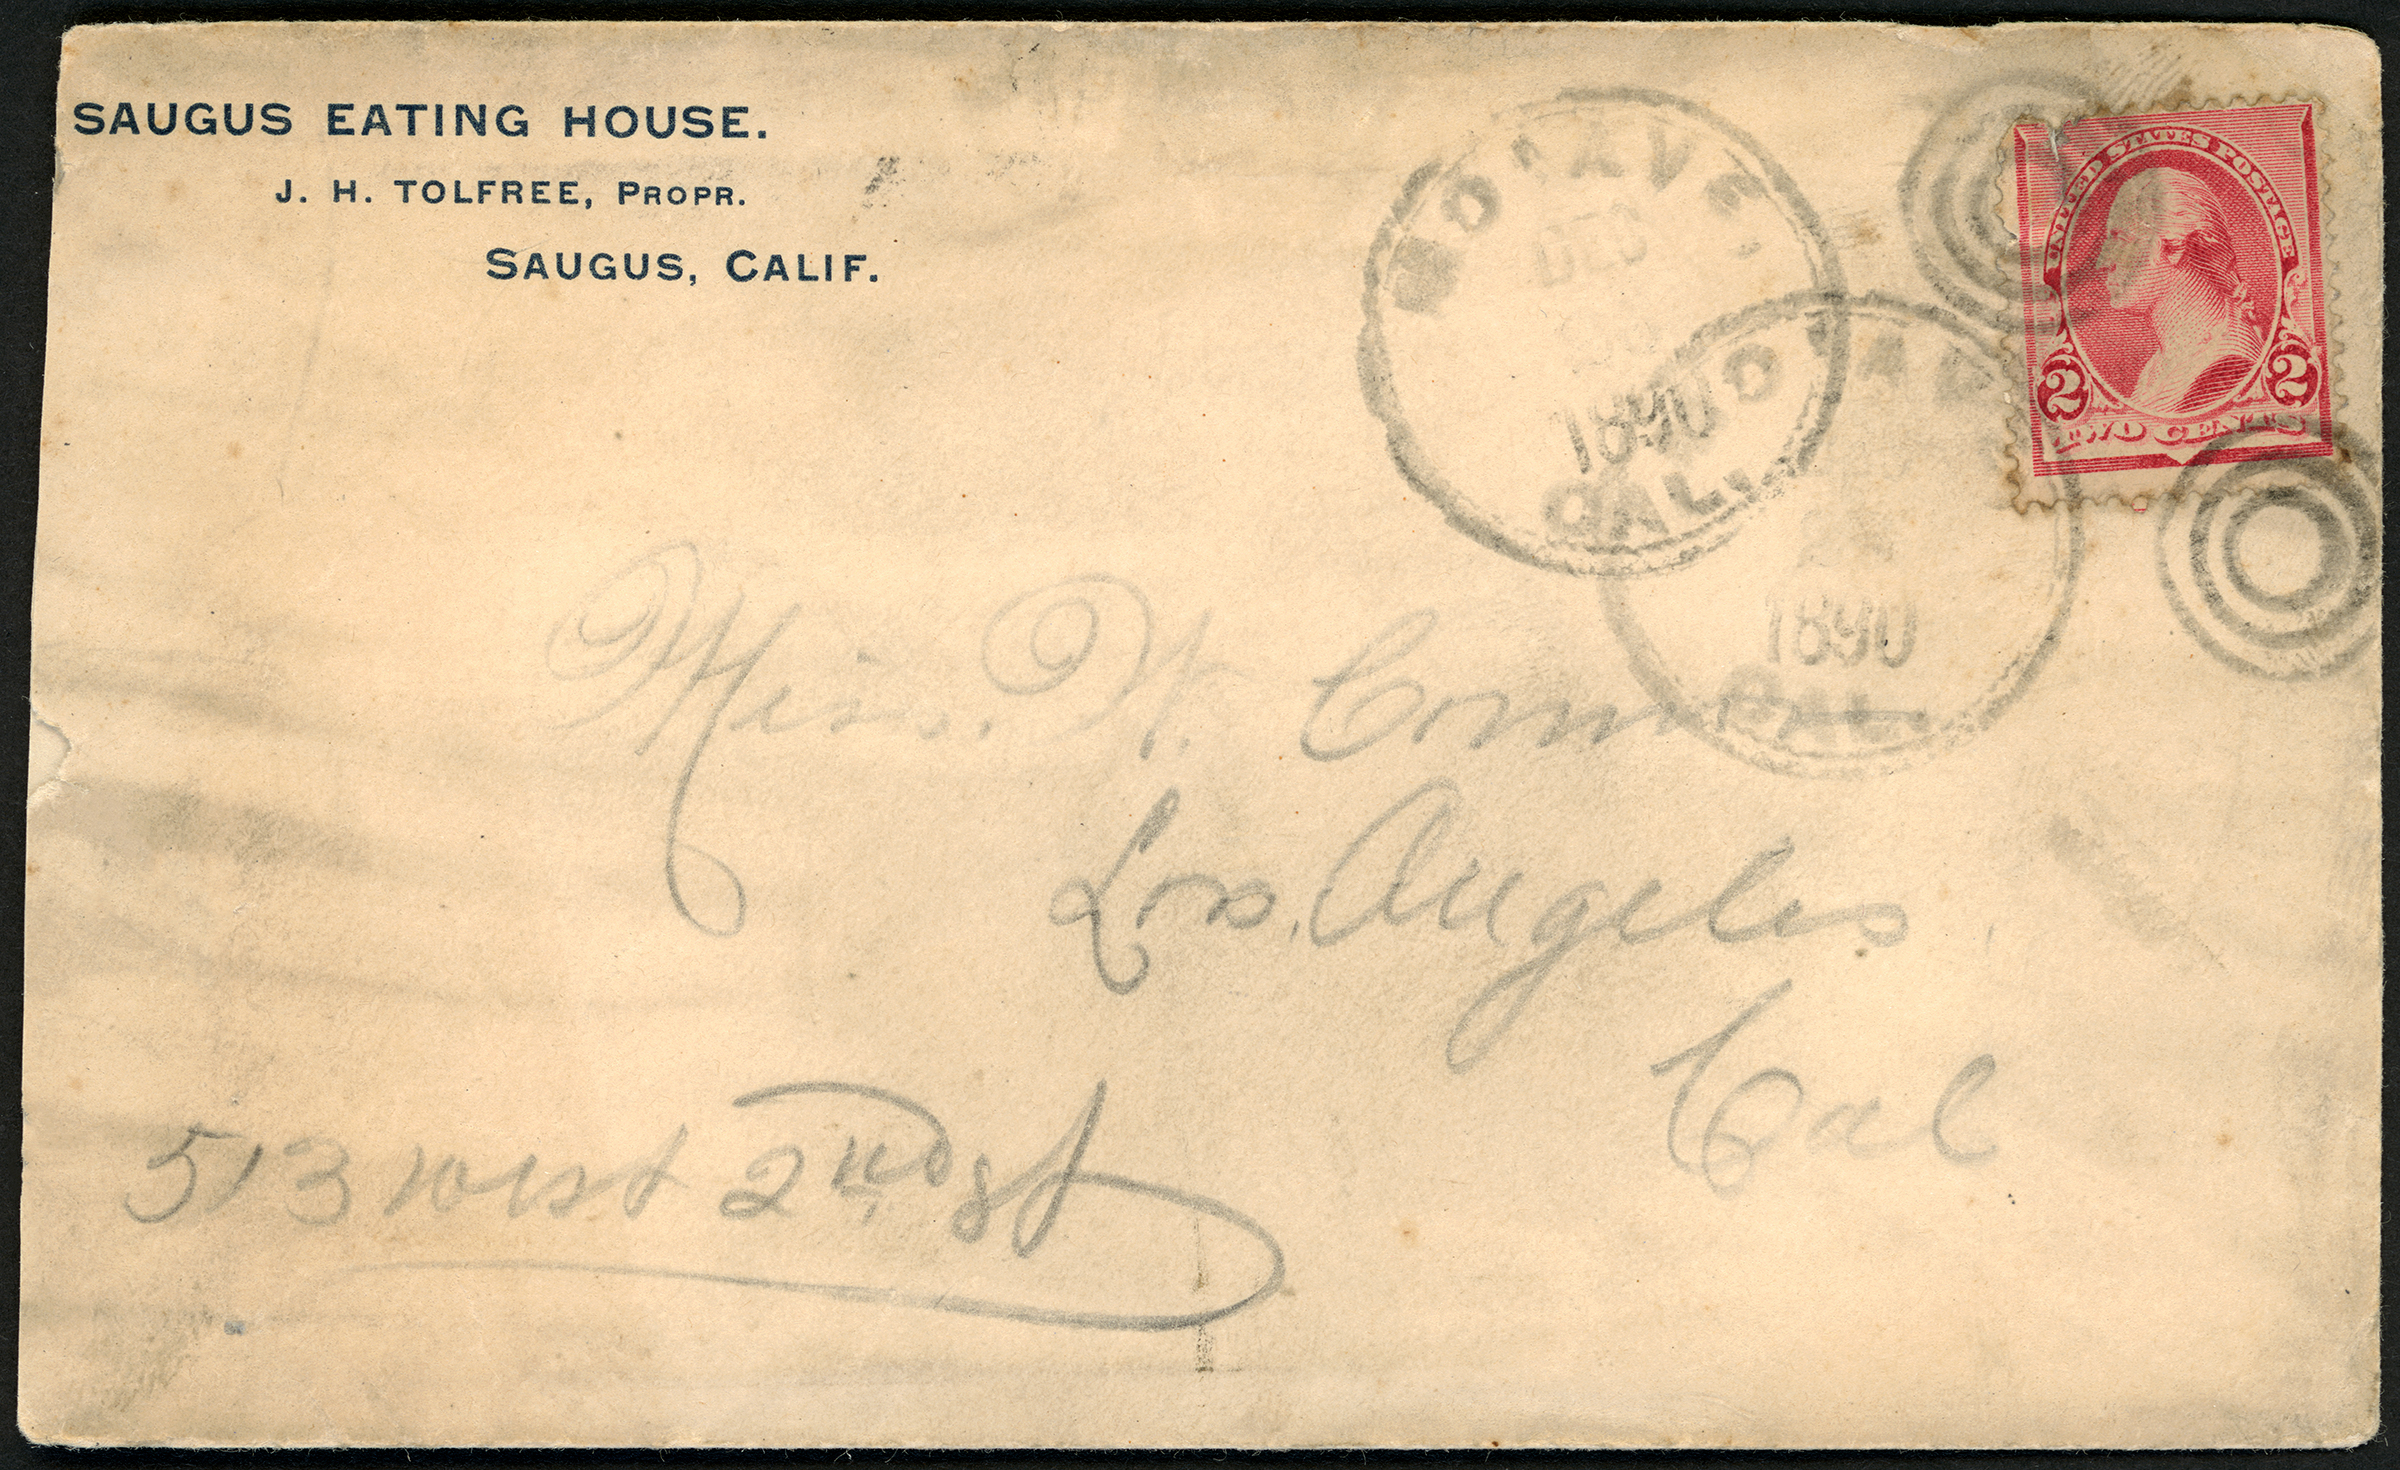 SAUGUS EATING HOUSE.
J. H. TOLFREE, PROPR.
SAUGUS, CALIF.
MOJAVE
DEC
1890
CAL.
1890
CAL.
UNITED STATES POSTAGE
2 2
TWO CENTS
Miss. W.
Los Angeles
Cal
513 West 2nd st